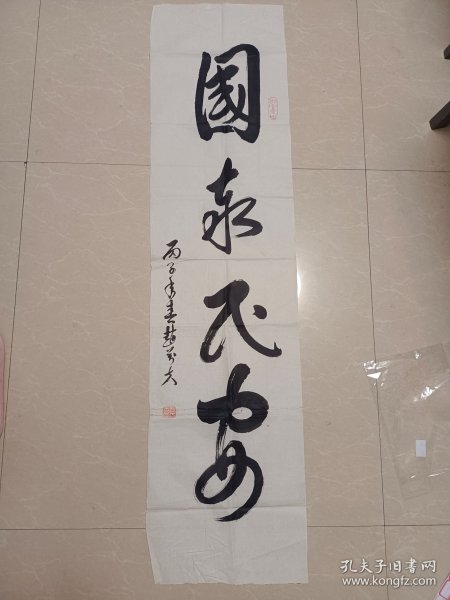 國泰民安
丙子年春
孔夫子旧书网
www.kongfz.com